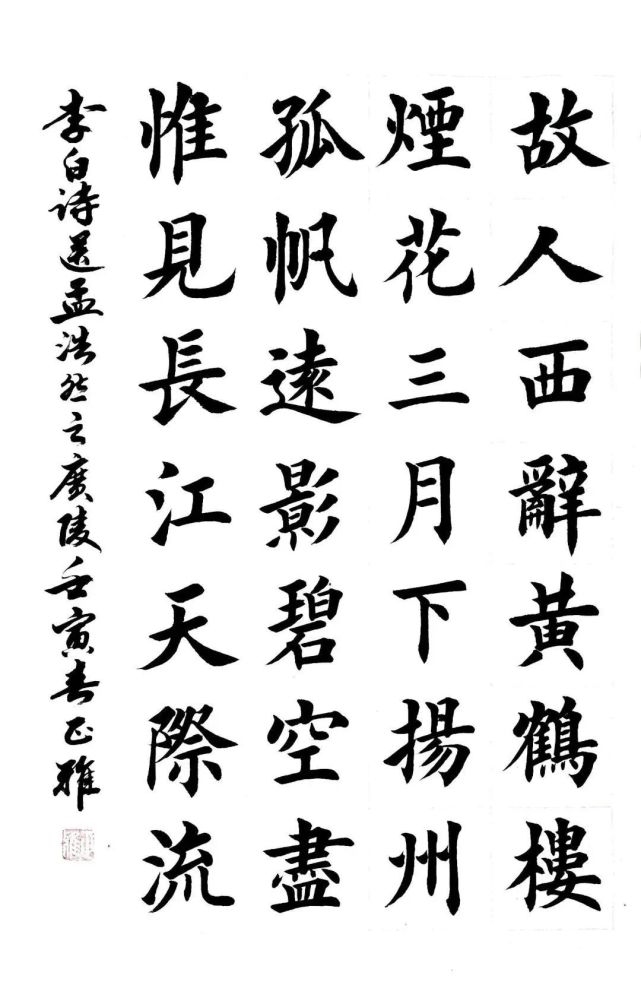 故人西辭黃鶴樓
煙花三月下揚州
孤帆遠影碧空盡
惟見長江天際流
李白詩送孟浩然之廣陵壬寅春正雅